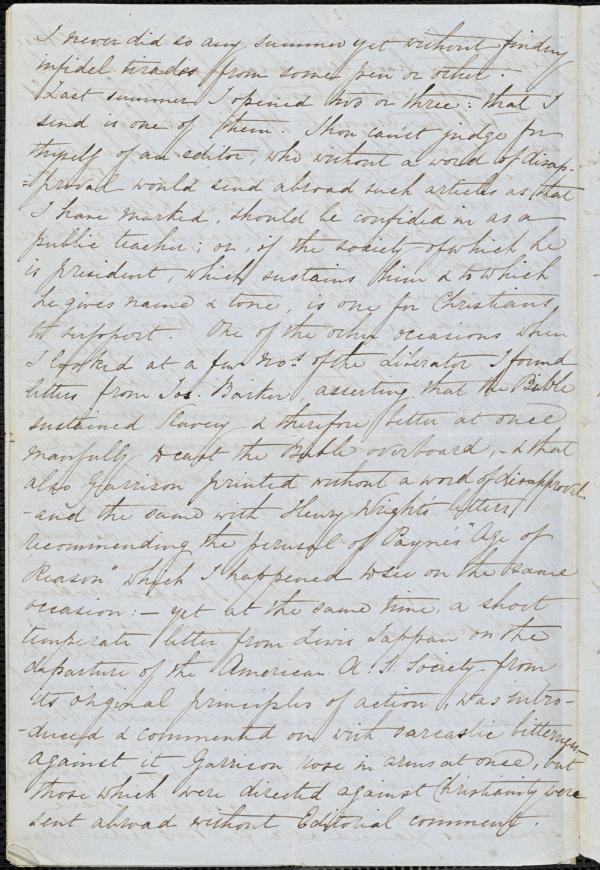 I never did so any summer yet without finding
infidel tirades from some pen or other.
Last summer I opened two or three: that I
send is one of them. Thou can'st judge for
thyself of an editor, who without a word of disap-
=proval would send abroad such articles as that
I have marked, should be confided in as a
public teacher; or, if the society of which he
is president, which sustains him & to which
he gives name & tone, is one for Christians
to support. One of the other occasions when
I looked at a few Nos. of the Liberator I found
letters from Jos. Barker, asserting that the Bible
sustained Slavery & therefore better at once
manfully to cast the Bible overboard, - & that
also Garrison printed without a word of disapproval.
- and the same with Henry Wrights letters,
recommending the perusal of Payne's "Age of
Reason" which I happened to see on the same
occasion: - yet at the same time, a short
temperate letter from Lewis Tappan on the
departure of the American A. S. Society from
its original principles of action, was intro-
-duced & commented on with sarcastic bitterness
against it Garrison rose in arms at once, but
those which were directed against Christianity were
sent abroad without Editorial comment.